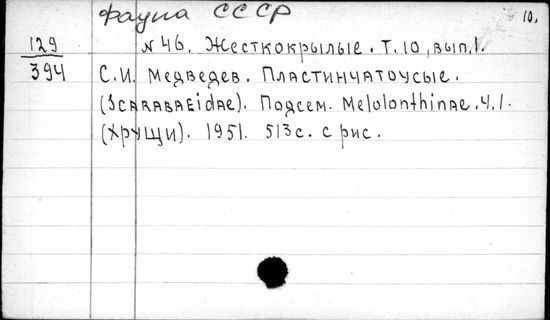 Фауна СССР
10.
129 № 46. Жесткокрылые. Т. 10, вып. 1.
394 С.И. Медведев. Пластинчатоусые.
(Scarabaeidae). Подсем. Melolonthinae. Ч. 1.
(Хрущи). 1951. 513 с. с рис.